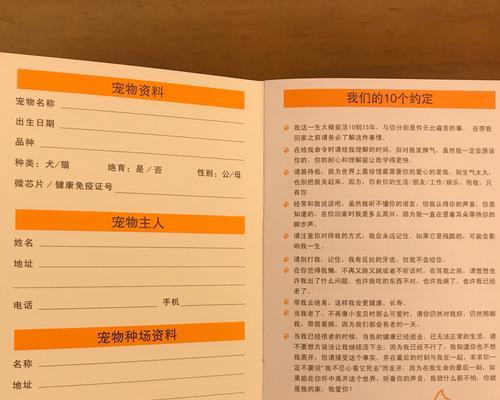 宠物资料
宠物名称
出生日期
品种
种类：犬/猫 绝育：是/否 性别：公/母
微芯片/健康免疫证号
宠物主人
姓名
地址
电话 手机
宠物种场资料
名称
地址
我们的10个约定
我这一生大概能活10到15年，与你分别是件无比痛苦的事。在带我
回家之前请务必了解这件事情。
在给我命令时请给我理解的时间，别对我发脾气，虽然我一定会原谅
你的，你的耐心和理解能让我学得更快。
请善待我，因为世界上最珍惜最需要你的爱心的是我，别生气太久，
也别把我关起来，因为，你有你的生活/朋友/工作/娱乐，而我，只
有你
经常和我说话吧，虽然我听不懂你的语言，但我认得你的声音，你是
知道的，在你回家时我是多么高兴，因为我一直在竖着耳朵等待你的
脚步声。
请注意你对待我的方式，我会永远记住，如果它是残酷的，可能会影
响我一生。
请别打我，记住，我有反抗的牙齿，但我不会咬你。
在你觉得我懒，不再又跑又跳或者不听话时，在骂我之前，请想想也
许我出了什么问题，也许我吃的东西不对，也许我病了，也许我已经
老了。
带我去绝育，这样我会更健康、长寿。
当我老了，不再像小宝贝时那么可爱时，请你仍然对我好，仍然照顾
我，带我看病，因为我们都会有老的一天。
当我已经很老的时候，当我的健康已经逝去，已无法正常的生活，请
不要想方设法让我继续活下去，因为我已经不行了，我知道你也不想
我离开，但请接受这个事实，并在最后的时刻与我在一起，求求你一
定不要说"我不忍心看它死去"而走开，因为在我生命的最后一刻，如
果能在你怀中离开这个世界，听着你的声音，我就什么都不怕，你就
是我的家，我爱你！